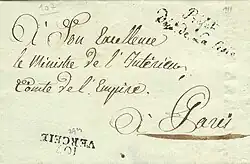 107
Préfet
Dépt de La Sesia
à Son Excellence
le Ministre de l'Intérieur,
Comte de l'Empire.
à Paris
VERCEIL